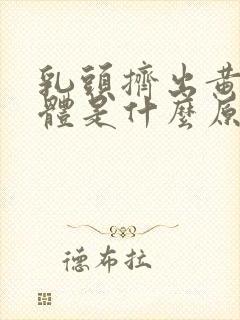 乳頭擠出黃
體是什麼原
德布拉